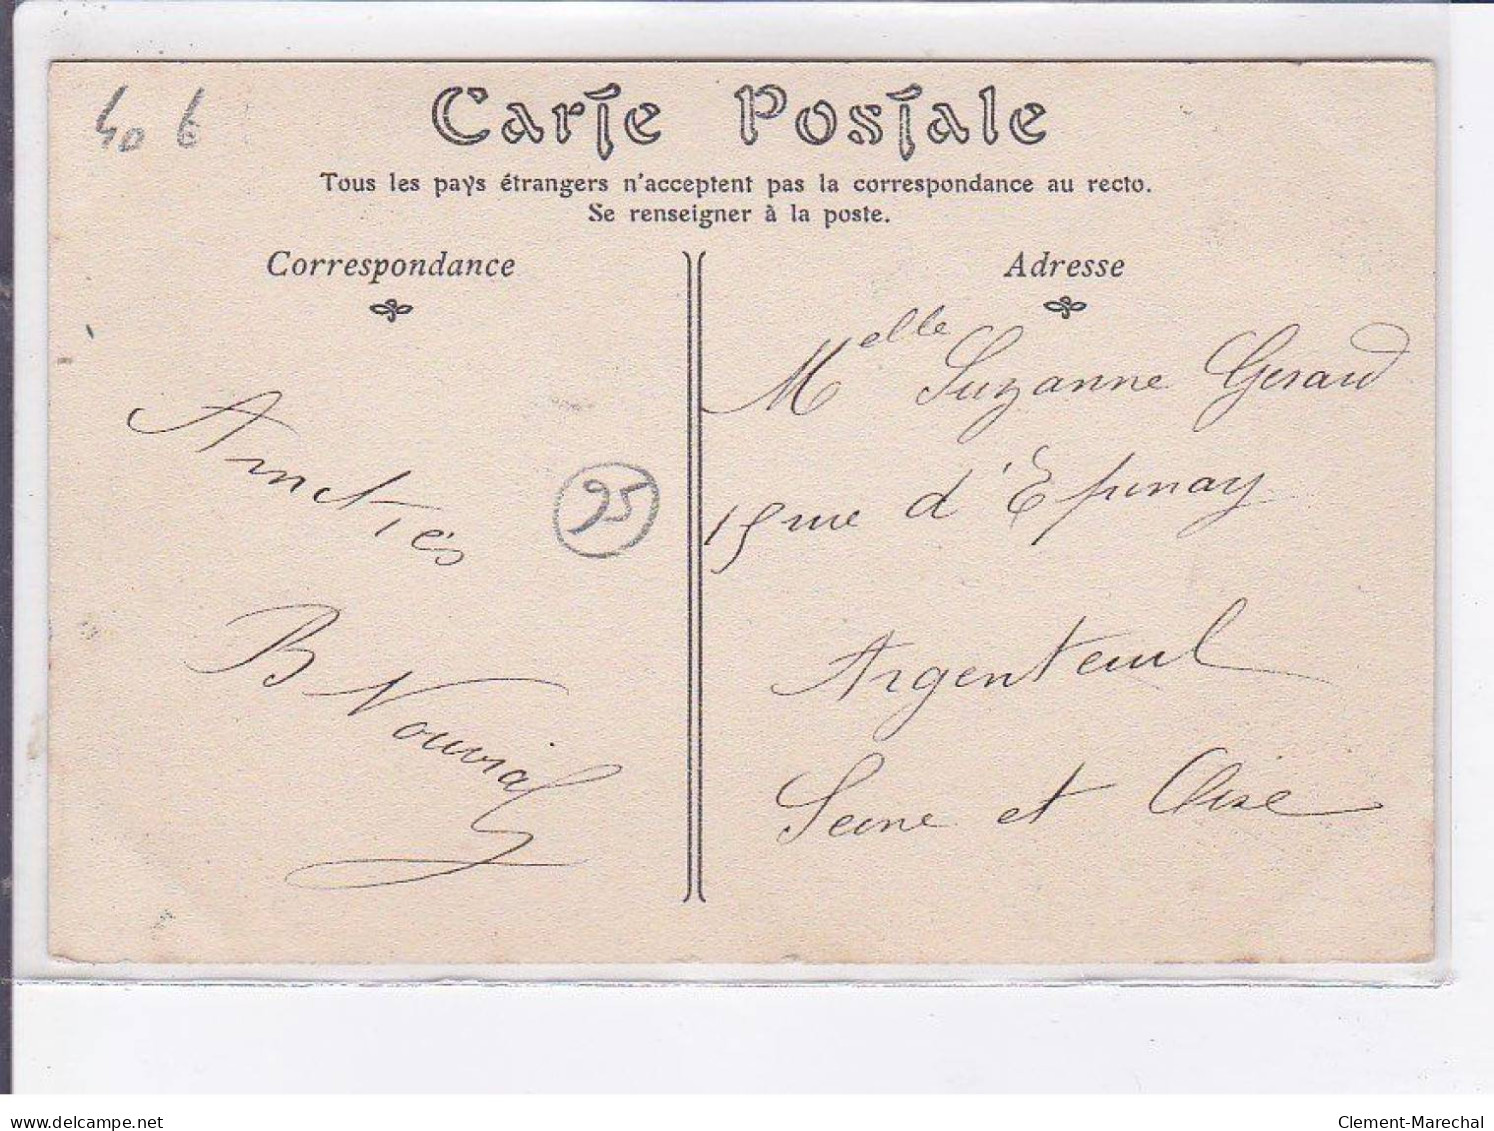 40 €
Carte Postale
Tous les pays étrangers n'acceptent pas la correspondance au recto.
Se renseigner à la poste.
Correspondance
Amitiés
B
95
Adresse
Melle Suzanne Gerard
15 rue d'Epinay
Argenteuil
Seine et Oise
delcampe.net
Clement-Marechal